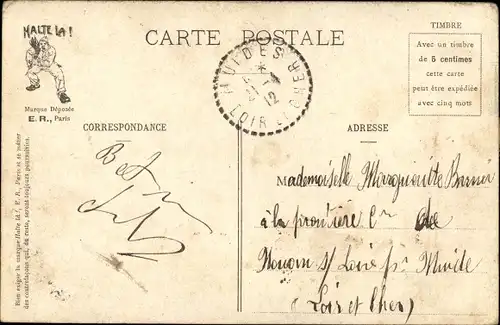 HALTE LA !
Marque Déposée
E. R., Paris
CARTE POSTALE
MUIDES
21 -4
12
LOIR ET CHER
TIMBRE
Avec un timbre
de 5 centimes
cette carte
peut être expédiée
avec cinq mots
CORRESPONDANCE
ADRESSE
Bien exiger la marque Halte là ! E. R., Paris et se méfier
des contrefaçons qui, du reste, seront toujours poursuivies.
Mademoiselle Marguerite
à la
S/ Loire pr Muide
(Loir et Cher)